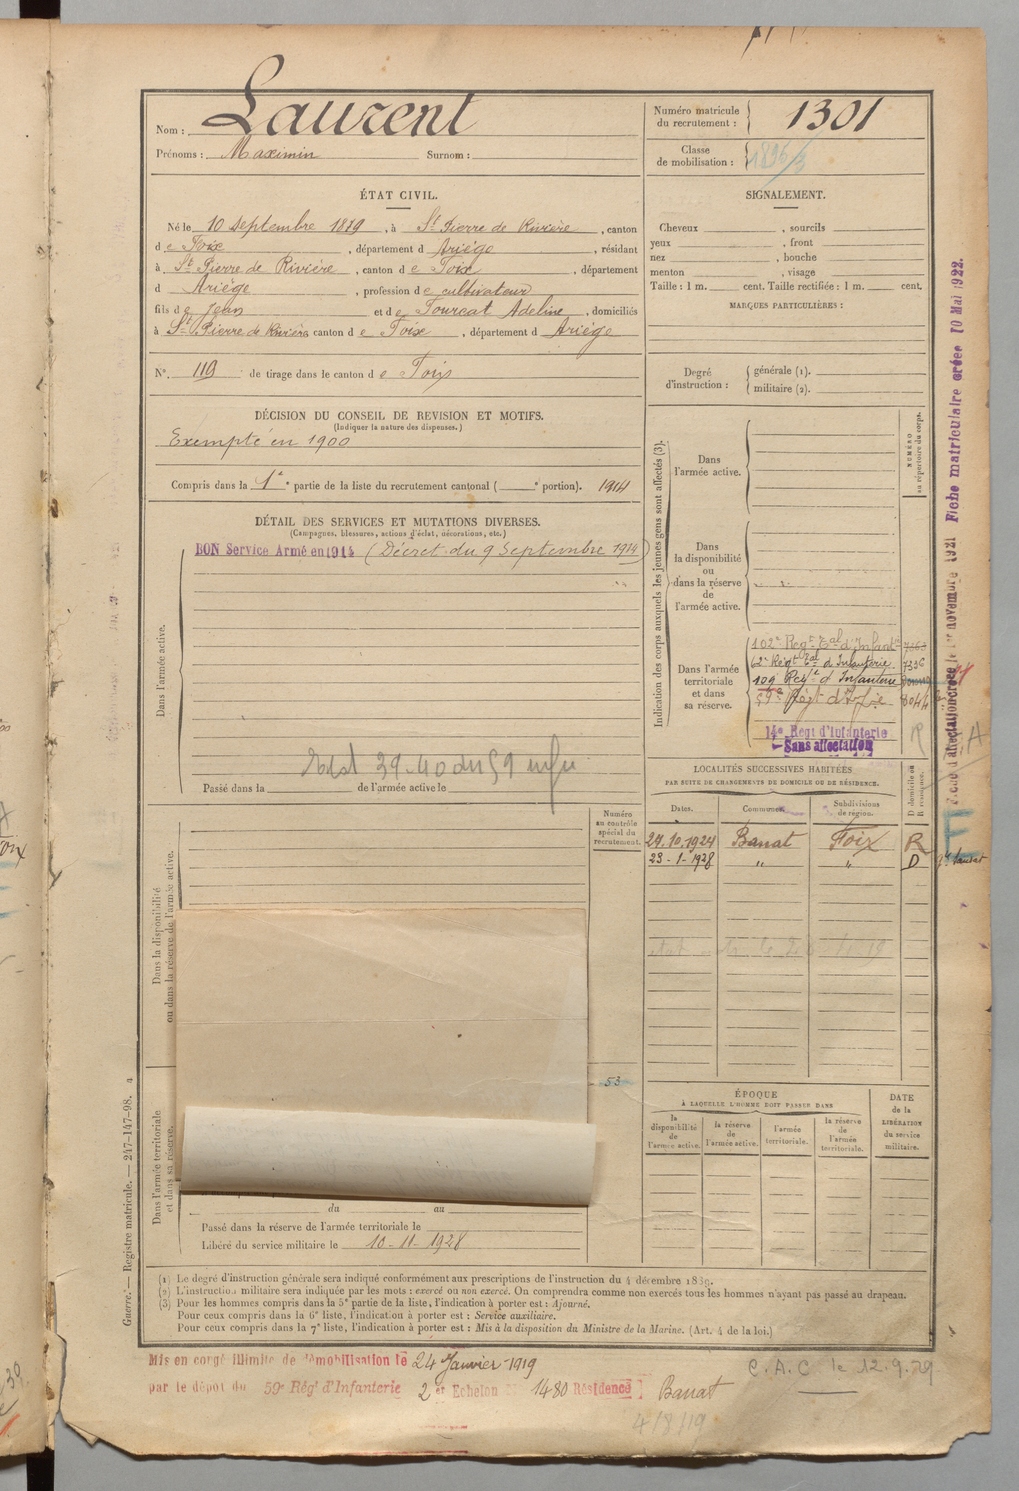 Nom : Laurent
Prénoms : Maximin Surnom :
Numéro matricule du recrutement : 1301
Classe de mobilisation : 1896/3
ÉTAT CIVIL.
Né le 10 Septembre 1879, à St Pierre de Rivière, canton
de Foix, département d Ariége, résidant
à St Pierre de Rivière, canton de Foix, département
d Ariége, profession de cultivateur
fils de Jean et de Fourcat Adeline, domiciliés
à St Pierre de Rivière canton de Foix, département d Ariége
N°. 119 de tirage dans le canton de Foix
DÉCISION DU CONSEIL DE REVISION ET MOTIFS.
(Indiquer la nature des dispenses.)
Exempté en 1900
Compris dans la 1e partie de la liste du recrutement cantonal ( e portion). 1914
DÉTAIL DES SERVICES ET MUTATIONS DIVERSES.
(Campagnes, blessures, actions d'éclat, décorations, etc.)
BON Service Armé en 1914 (Décret du 9 Septembre 1914)
Dans l'armée active.
Passé dans la de l'armée active le
Numéro au contrôle spécial du recrutement.
Dans la disponibilité ou dans la réserve de l'armée active.
53
Dans l'armée territoriale et dans sa réserve.
du au
Passé dans la réserve de l'armée territoriale le
Libéré du service militaire le 10-11-1928
SIGNALEMENT.
Cheveux , sourcils
yeux , front
nez , bouche
menton , visage
Taille : 1 m. cent. Taille rectifiée : 1 m. cent.
MARQUES PARTICULIÈRES :
Degré d'instruction : générale (1).
militaire (2).
Indication des corps auxquels les jeunes gens sont affectés (3).
NUMÉRO au répertoire du corps.
Dans l'armée active.
Dans la disponibilité ou dans la réserve de l'armée active.
Dans l'armée territoriale et dans sa réserve.
102e Régt Tal d'Infantie
62e Régt Tal d'Infanterie 7336
109 Régt d'Infanterie
59e Régt d'Infie 8044
14e Régt d'Infanterie
Sans affectation
R
LOCALITÉS SUCCESSIVES HABITÉES
PAR SUITE DE CHANGEMENTS DE DOMICILE OU DE RÉSIDENCE.
Dates. Communes. Subdivisions de région. D domicile ou R résidence.
27.10.1924 Banat Foix R
23-1-1928 " " D
ÉPOQUE
À LAQUELLE L'HOMME DOIT PASSER DANS
la disponibilité de l'armée active.
la réserve de l'armée active.
l'armée territoriale.
la réserve de l'armée territoriale.
DATE de la LIBÉRATION du service militaire.
Fiche matriculaire créée 10 Mai 1922.
E
(1) Le degré d'instruction générale sera indiqué conformément aux prescriptions de l'instruction du 4 décembre 1889.
(2) L'instruction militaire sera indiquée par les mots : exercé ou non exercé. On comprendra comme non exercés tous les hommes n'ayant pas passé au drapeau.
(3) Pour les hommes compris dans la 5e partie de la liste, l'indication à porter est : Ajourné.
Pour ceux compris dans la 6e liste, l'indication à porter est : Service auxiliaire.
Pour ceux compris dans la 7e liste, l'indication à porter est : Mis à la disposition du Ministre de la Marine. (Art. 4 de la loi.)
Guerre. — Registre matricule. — 247-147-98. 4
Mis en congé illimité de démobilisation le 24 Janvier 1919
par le dépôt du 59e Régt d'Infanterie 2e Echelon N° 1480 Résidence Banat
C.A.C. le 12.9.29
4/8/19